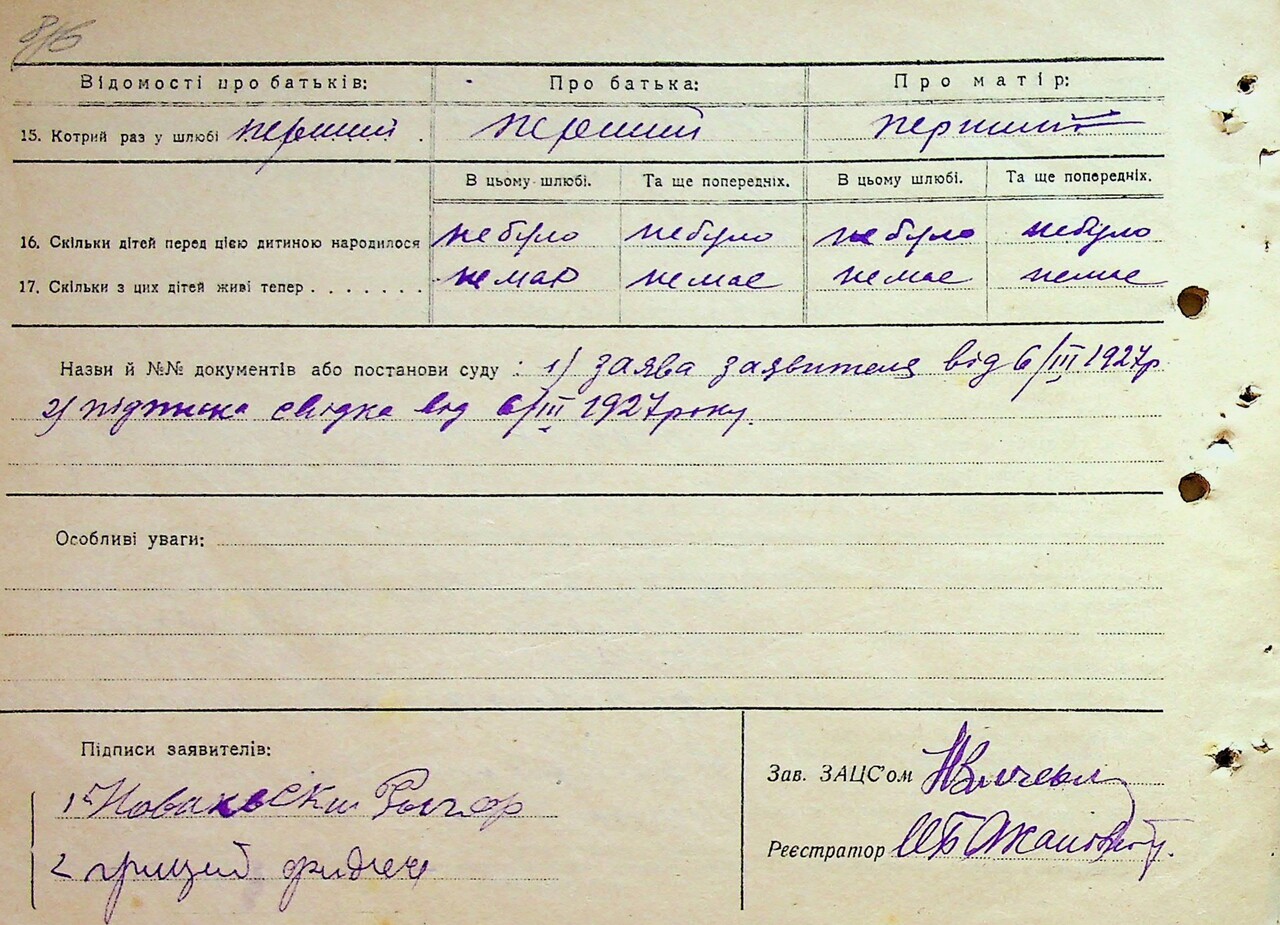 Відомості про батьків: Про батька: Про матір:
15. Котрий раз у шлюбі перший . перший перший
В цьому шлюбі. Та ще попередніх. В цьому шлюбі. Та ще попередніх.
16. Скільки дітей перед цією дитиною народилося небуло небуло небуло небуло
17. Скільки з цих дітей живі тепер . . . . . . . немає немає немає немає
Назви й №№ документів або постанови суду : 1) заява заявителя від 6/III 1927р
2) підписка свідка від 6/III 1927 року.
Особливі уваги:
Підписи заявителів:
Зав. ЗАЦС'ом
1
Реєстратор
2